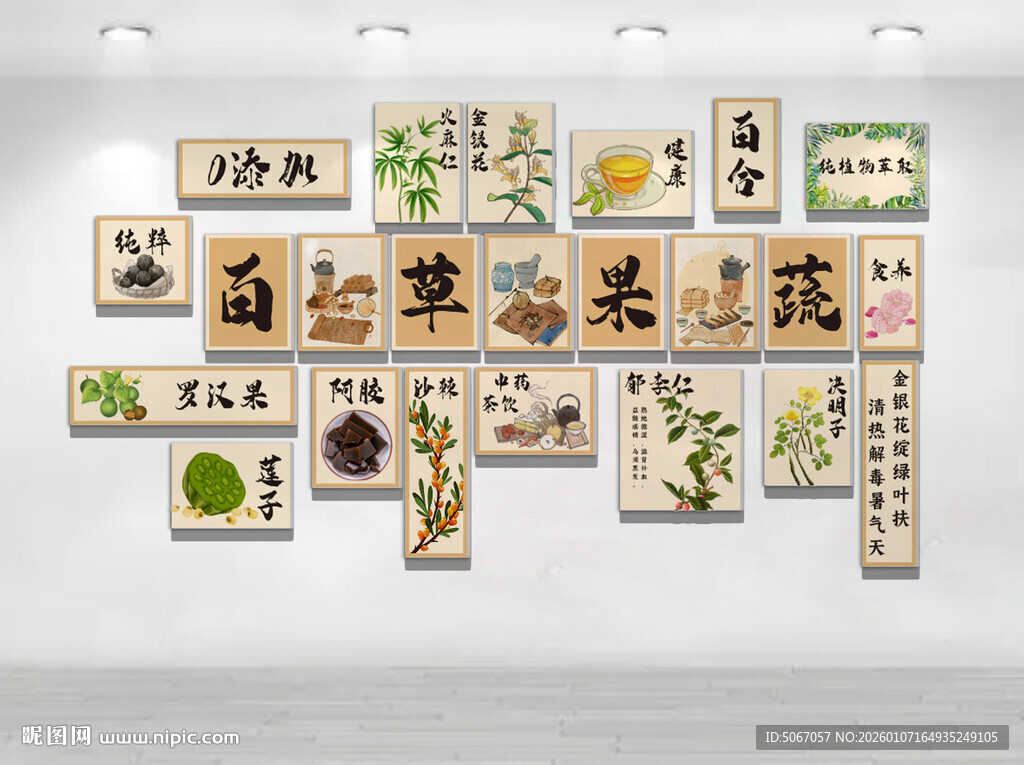 0添加
火麻仁
金银花
健康
百合
纯植物萃取
纯粹
百草果蔬
食养
罗汉果
阿胶
沙棘
中药
茶饮
郁李仁
决明子
金银花绽绿叶扶
清热解毒暑气天
莲子
昵图网 www.nipic.com
ID:5067057 NO:20260107164935249105